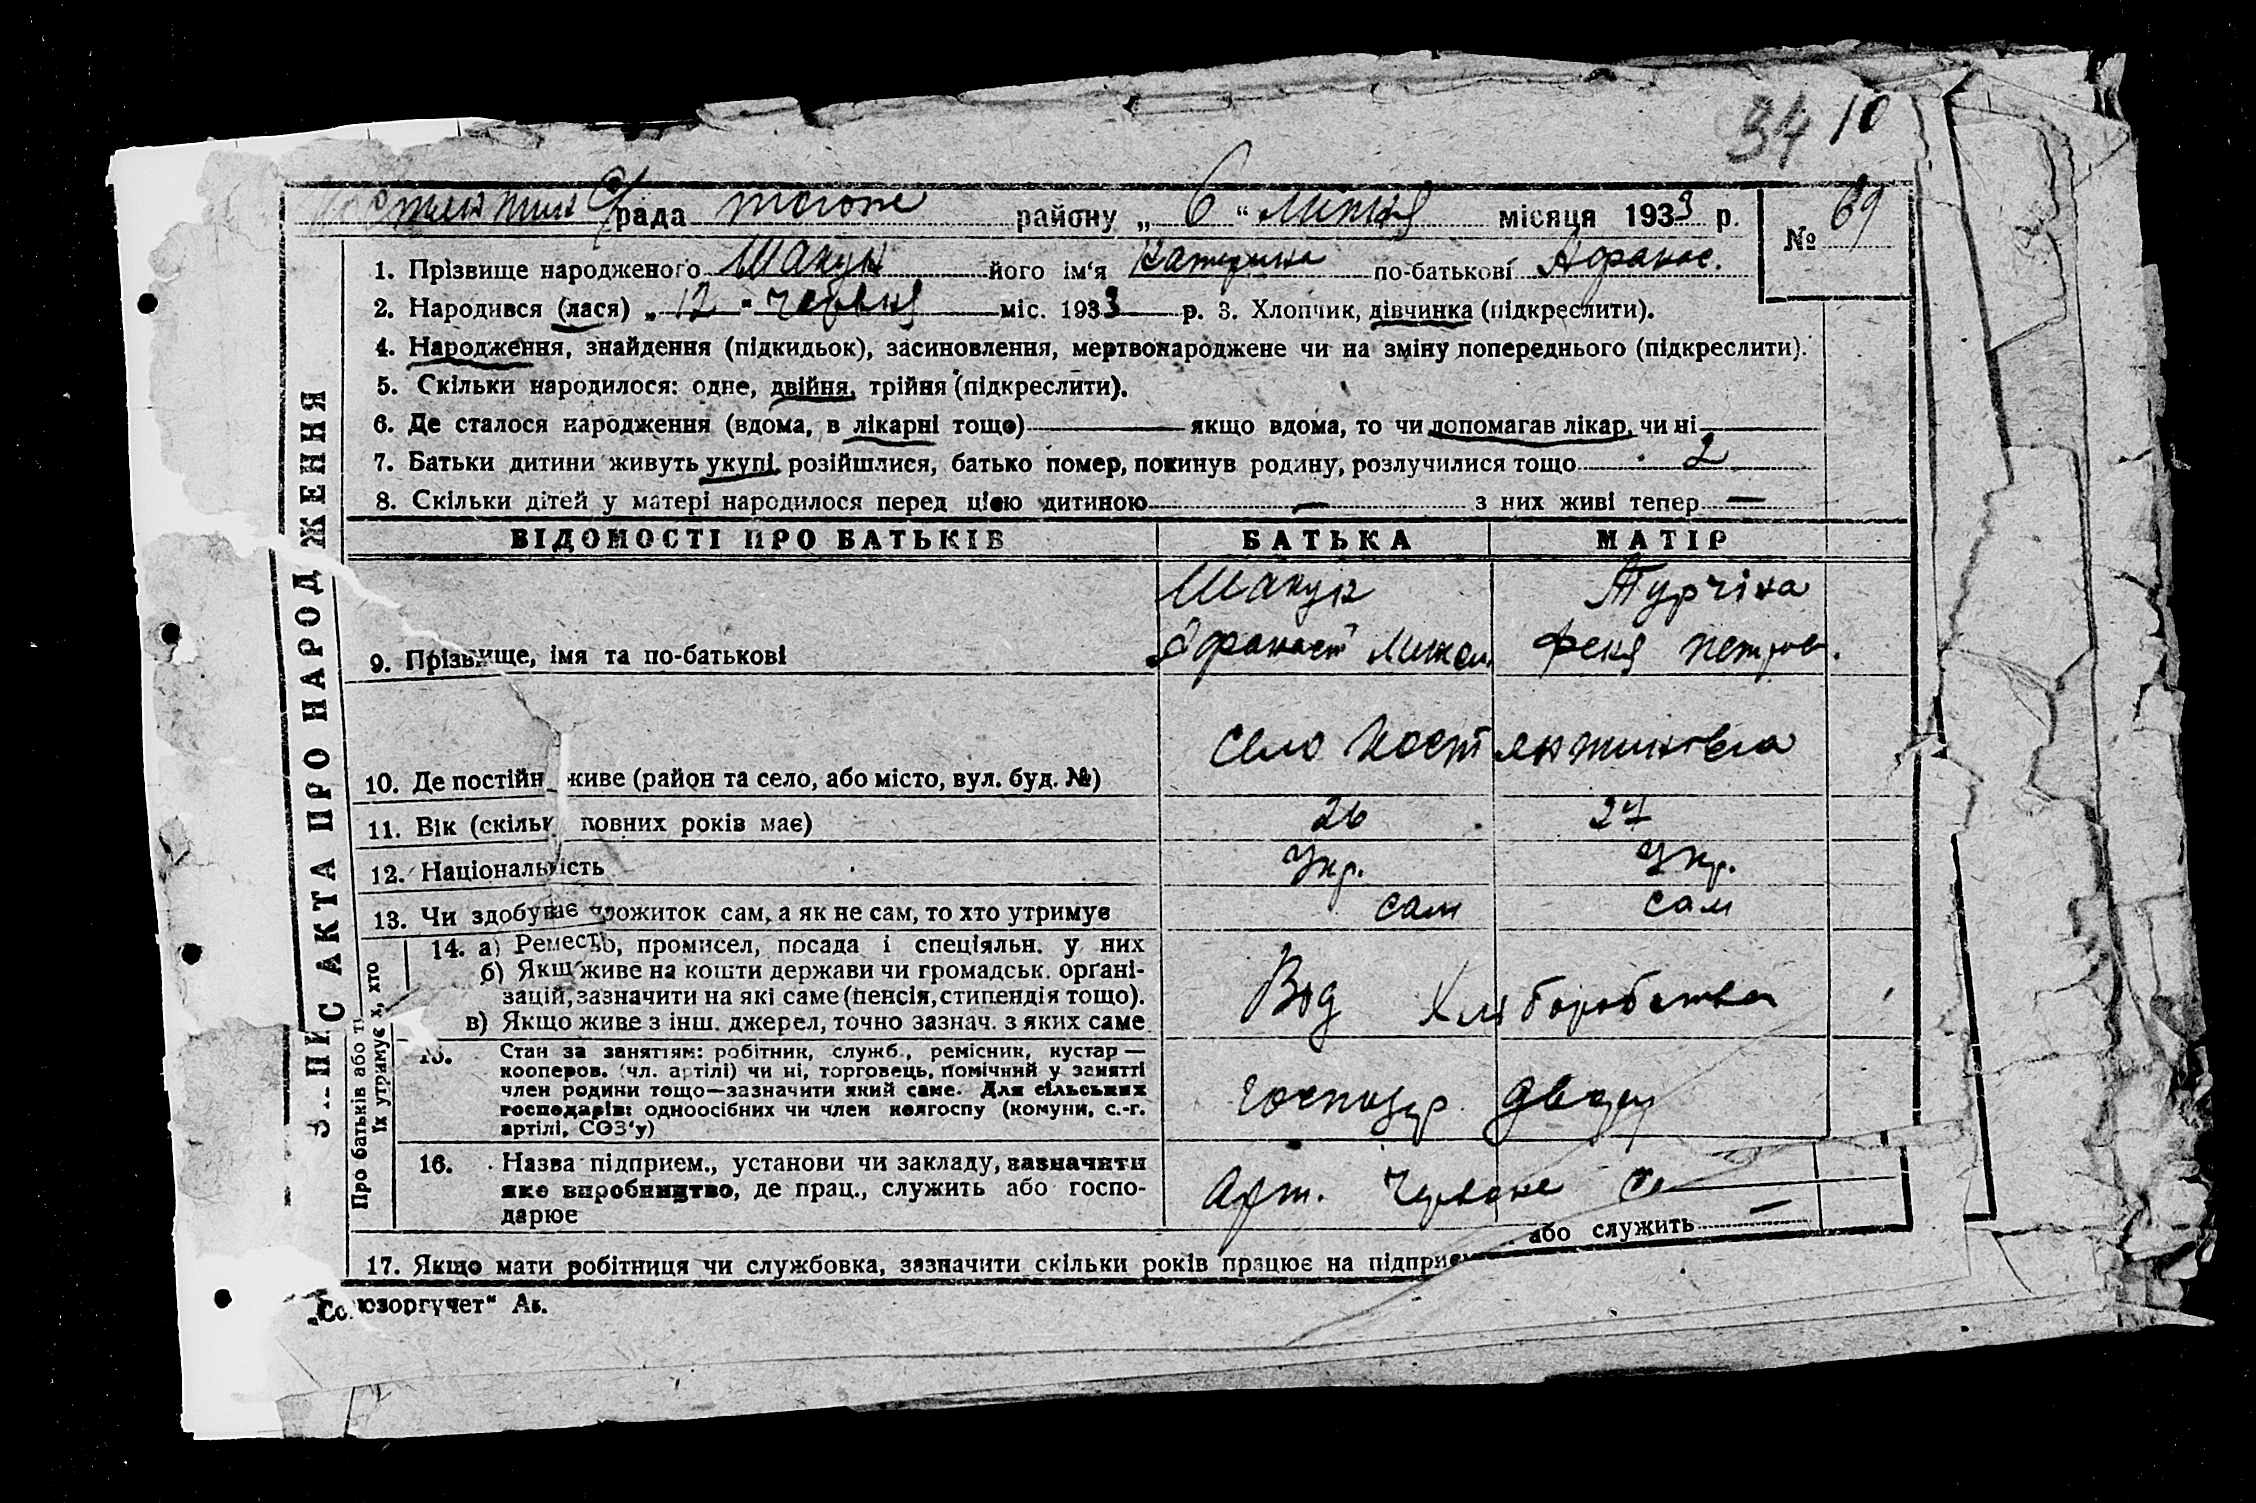 34 10
рада району „ 6 “ липня місяця 1933 р. № 69
1. Прізвище народженого Шакун його ім‘я Катерина по-батькові Афанас.
2. Народився (лася) „ 12 " червня міс. 1933 р. 3. Хлопчик, дівчинка (підкреслити).
4. Народження, знайдення (підкидьок), засиновлення, мертвонароджене чи на зміну попереднього (підкреслити).
5. Скільки народилося: одне, двійня, трійня (підкреслити).
6. Де сталося народження (вдома, в лікарні тощо) якщо вдома, то чи допомагав лікар, чи ні
7. Батьки дитини живуть укупі, розійшлися, батько помер, покинув родину, розлучилися тощо 2
8. Скільки дітей у матері народилося перед цією дитиною — з них живі тепер —
ВІДОМОСТІ ПРО БАТЬКІВ БАТЬКА МАТІР
Шакун Турчіна
Афанасий Микол. Феня Петров.
9. Прізвище, імя та по-батькові
село Костянтиновка
10. Де постійн живе (район та село, або місто, вул. буд. №)
11. Вік (скільк повних років має) 26 27
12. Національність Укр. Укр.
13. Чи здобуває прожиток сам, а як не сам, то хто утримує сам сам
14. а) Ремесло, промисел, посада і спеціяльн. у них
б) Якщо живе на кошти держави чи громадськ. органі-
зацій, зазначити на які саме (пенсія, стипендія тощо).
в) Якщо живе з інш. джерел, точно зазнач. з яких саме
Від хліборобства
15. Стан за заняттям: робітник, служб., ремісник, кустар —
кооперов. (чл. артілі) чи ні, торговець, помічний у занятті
член родини тощо—зазначити який саме. Для сільських
господарів: одноосібних чи член колгоспу (комуни, с.-г.
артілі, СОЗ‘у)
господар двору
16. Назва підприєм., установи чи закладу, зазначити
яке виробництво, де прац., служить або госпо-
дарює
Арт. Червоне
17. Якщо мати робітниця чи службовка, зазначити скільки років працює на підприєм або служить —
„Союзоргучет“ Ак.
ЗАПИС АКТА ПРО НАРОДЖЕННЯ
Про батьків або ти х, хто
їх утримує